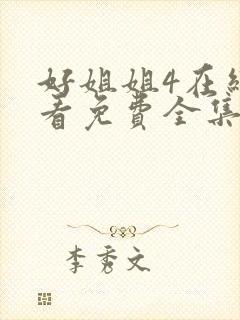 好姐姐4在线
看免费全集
李秀文